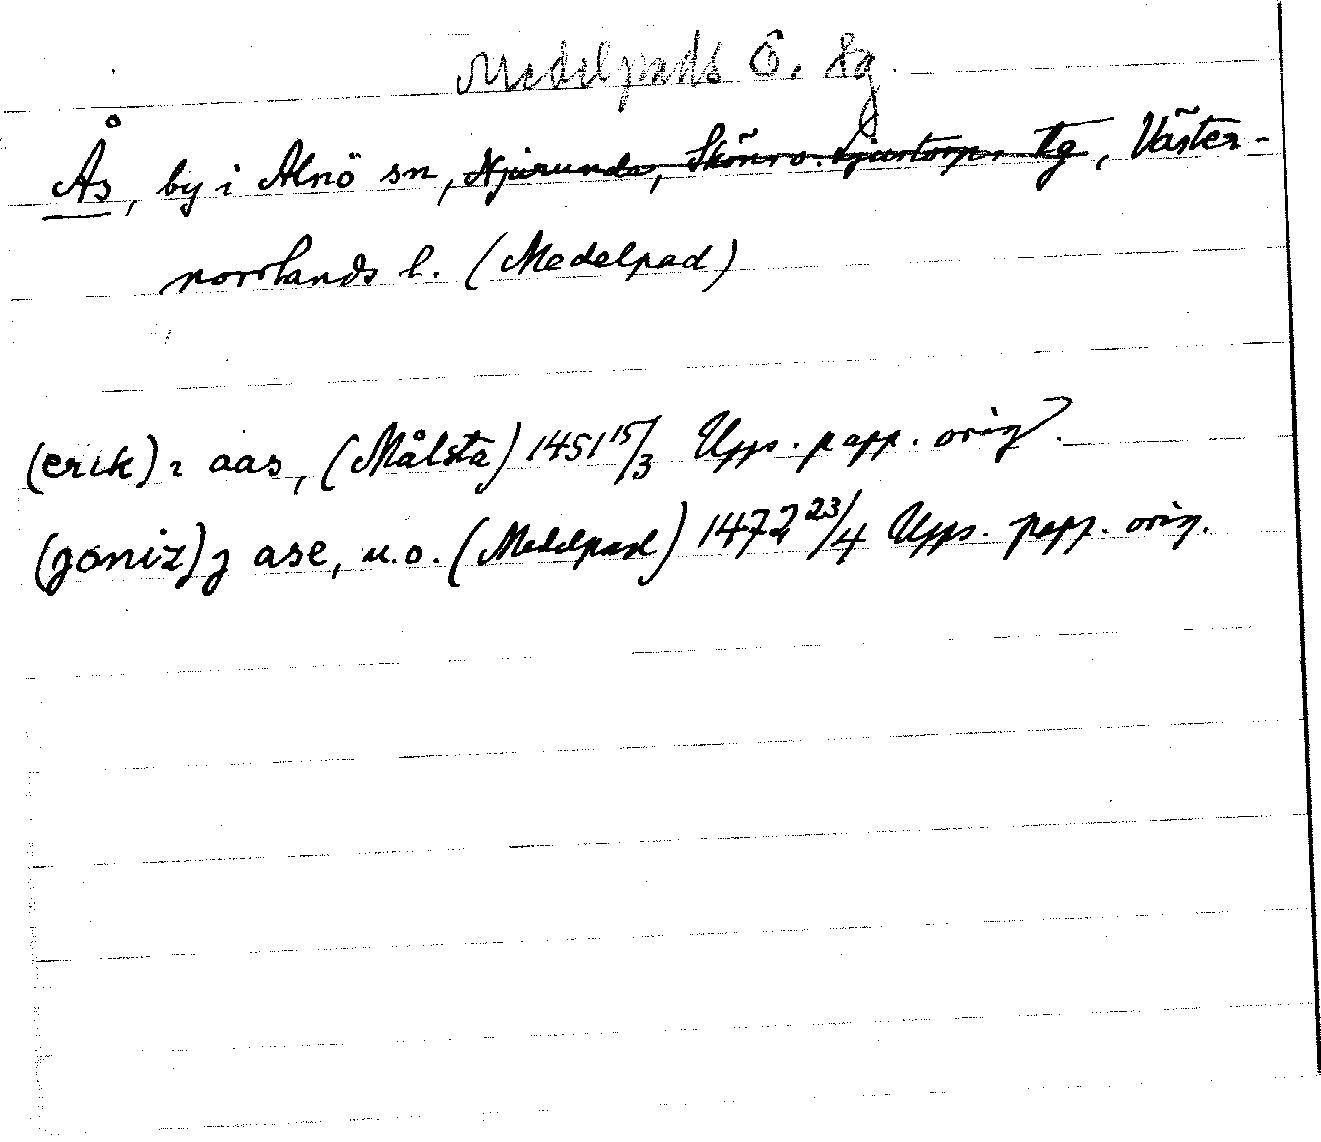 Medelpads Ö. tg
Ås, by i Alnö sn, Njurunda, Sköns o. Ljustorps tg, Väster-
norrlands l. (Medelpad)
(erik) ı aas, (Målsta) 1451 15/3 Upps. papp. orig.
(goniz) j ase, u.o. (Medelpad) 1472 23/4 Upps. papp. orig.